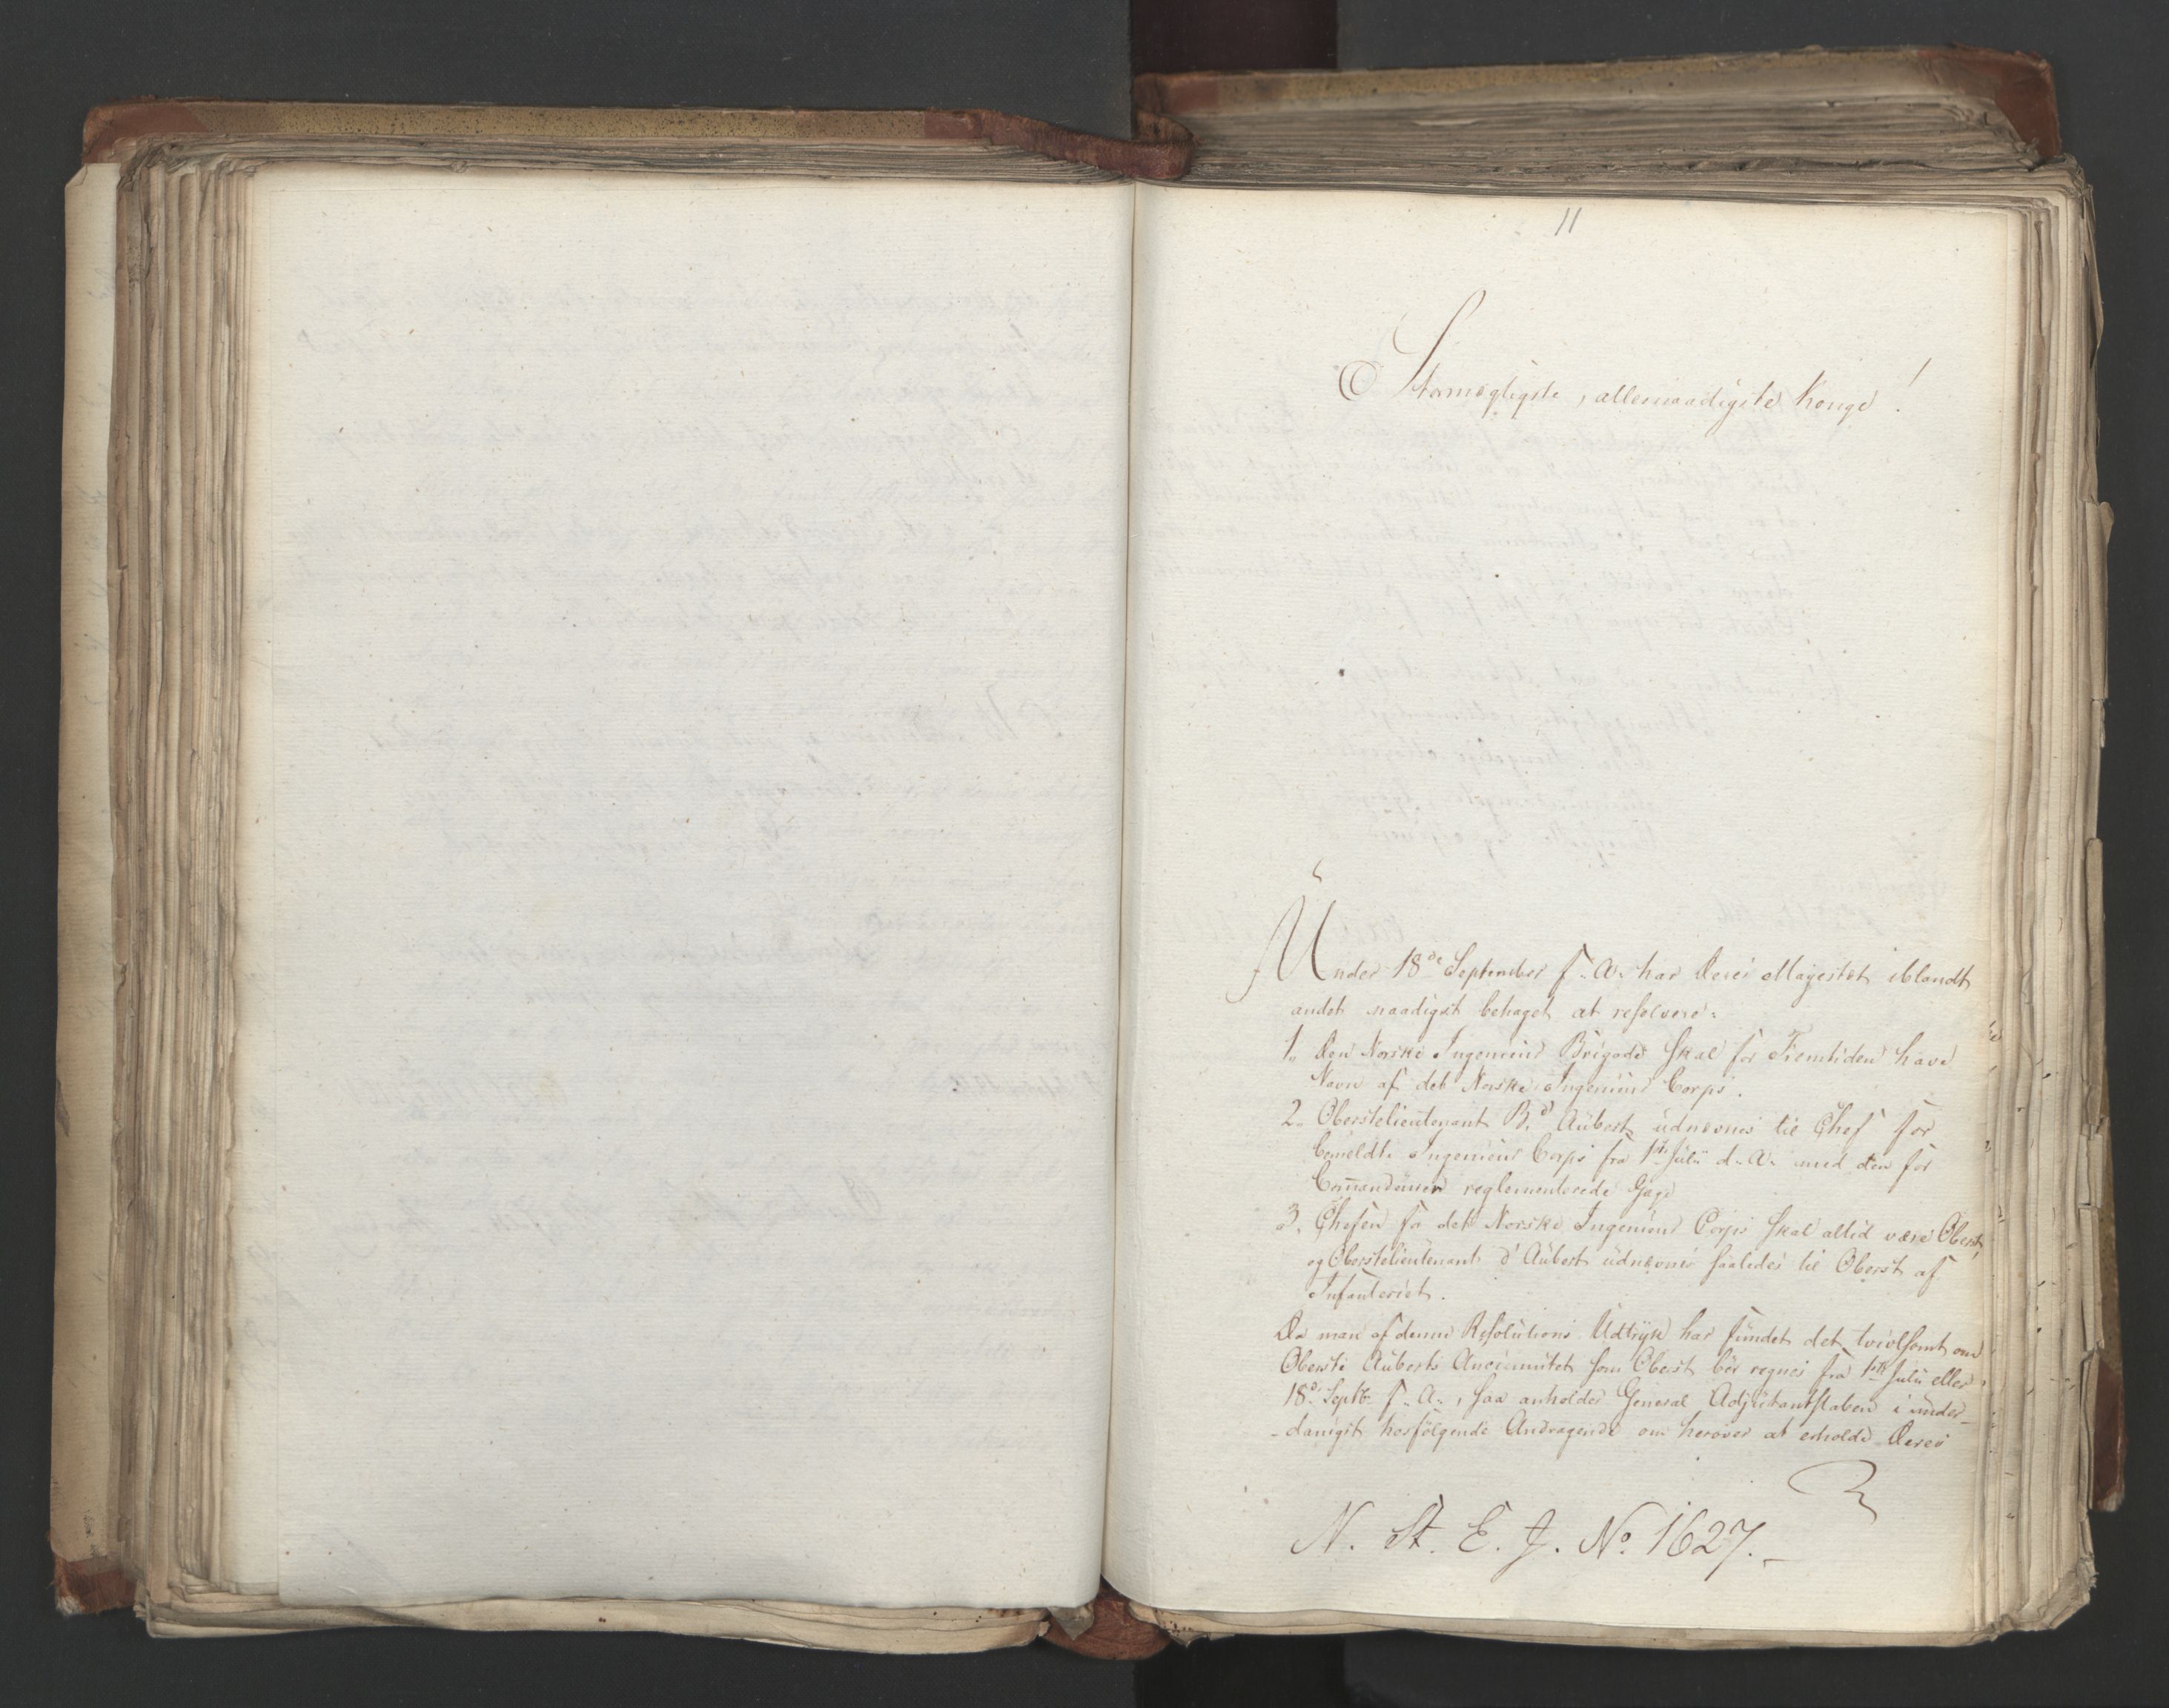 11
Stormægtigste, allernaadigste Konge!
Under 18de September f. A. har Deres Majestæt iblandt
andet naadigst behaget at resolvere:
1, Den Norske Ingenieur Brigade skal for Fremtiden have
Navn af det Norske Ingenieur Corps.
2. Oberstelieutenant B. d'Aubert udnævnes til Chef for
bemeldte Ingenieur Corps fra 1ste Julii d. A. med den for
Com̄andeuren reglementerede Gage
3. Chefen for det Norske Ingenieur Corps skal altid være Oberst,
og Oberstelieutenant d'Aubert udnævnes saaledes til Oberst af
Infanteriet.
Da man af denne Resolutions Udtryk har fundet det tvivlsomt om
Oberst Auberts Anciennitet som Oberst bør regnes fra 1ste Julii eller
18de Septbr f. A., saa anholder General Adjutantstaben i under-
-danigst hosfölgende Andragende om herover at erholde Deres
N. St. E. J. No. 1627.-